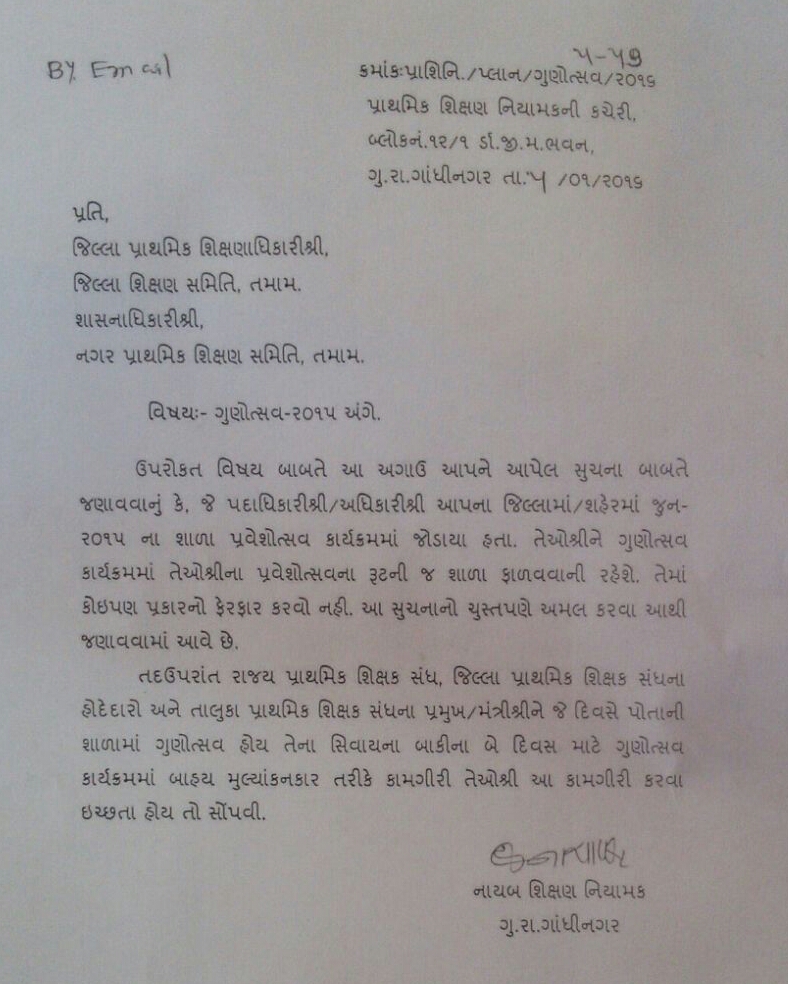 BY Email
૫-૫૭
ક્રમાંકઃપ્રાશિનિ./પ્લાન/ગુણોત્સવ/૨૦૧૬
પ્રાથમિક શિક્ષણ નિયામકની કચેરી,
બ્લોકનં.૧૨/૧ ર્ડા.જી.મ.ભવન,
ગુ.રા.ગાંધીનગર તા.૫ /૦૧/૨૦૧૬
પ્રતિ,
જિલ્લા પ્રાથમિક શિક્ષણાધિકારીશ્રી,
જિલ્લા શિક્ષણ સમિતિ, તમામ.
શાસનાધિકારીશ્રી,
નગર પ્રાથમિક શિક્ષણ સમિતિ, તમામ.
વિષયઃ- ગુણોત્સવ-૨૦૧૫ અંગે.
ઉપરોકત વિષય બાબતે આ અગાઉ આપને આપેલ સુચના બાબતે
જણાવવાનું કે, જે પદાધિકારીશ્રી/અધિકારીશ્રી આપના જિલ્લામાં/શહેરમાં જુન-
૨૦૧૫ ના શાળા પ્રવેશોત્સવ કાર્યક્રમમાં જોડાયા હતા. તેઓશ્રીને ગુણોત્સવ
કાર્યક્રમમાં તેઓશ્રીના પ્રવેશોત્સવના રૂટની જ શાળા ફાળવવાની રહેશે. તેમાં
કોઇપણ પ્રકારનો ફેરફાર કરવો નહી. આ સુચનાનો ચુસ્તપણે અમલ કરવા આથી
જણાવવામાં આવે છે.
તદઉપરાંત રાજય પ્રાથમિક શિક્ષક સંઘ, જિલ્લા પ્રાથમિક શિક્ષક સંઘના
હોદેદારો અને તાલુકા પ્રાથમિક શિક્ષક સંઘના પ્રમુખ/મંત્રીશ્રીને જે દિવસે પોતાની
શાળામાં ગુણોત્સવ હોય તેના સિવાયના બાકીના બે દિવસ માટે ગુણોત્સવ
કાર્યક્રમમાં બાહય મુલ્યાંકનકાર તરીકે કામગીરી તેઓશ્રી આ કામગીરી કરવા
ઇચ્છતા હોય તો સોંપવી.
નાયબ શિક્ષણ નિયામક
ગુ.રા.ગાંધીનગર